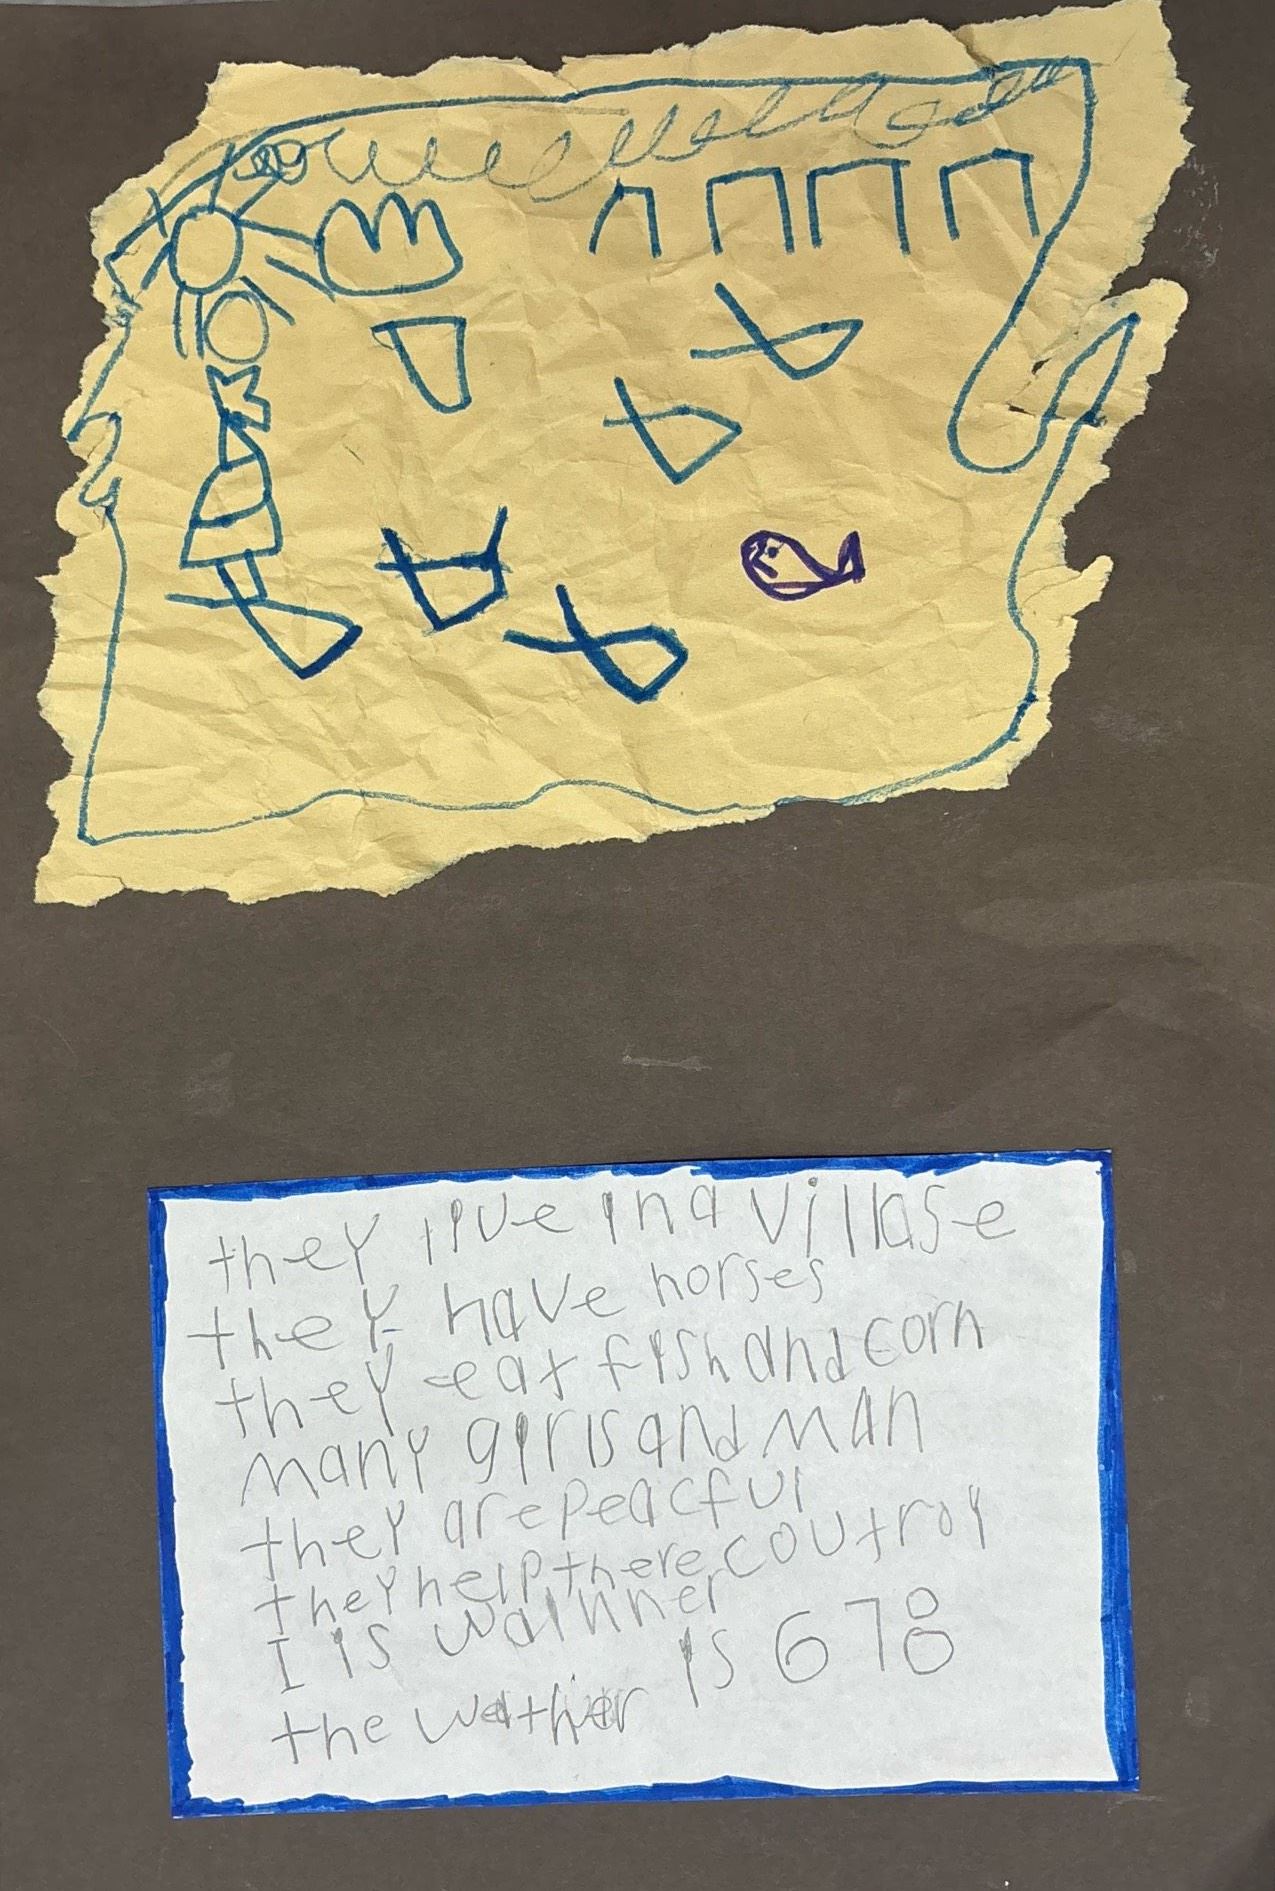 they live in a villase
they have horses
they eat fish and corn
many girls and man
they are peacful
they help there coutroy
I is walnner
the wather is 678